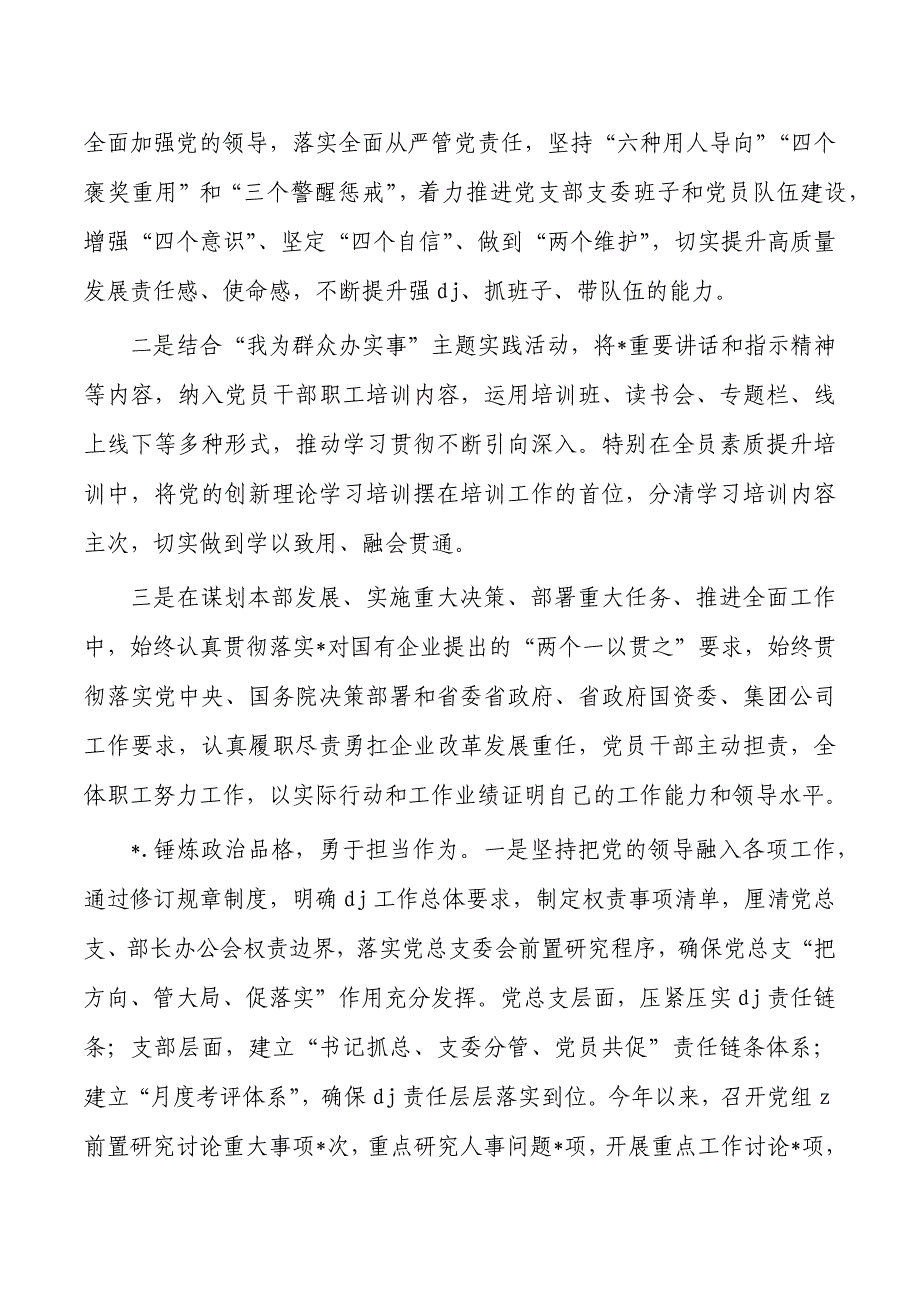 全面加强党的领导，落实全面从严管党责任，坚持“六种用人导向”“四个
褒奖重用”和“三个警醒惩戒”，着力推进党支部支委班子和党员队伍建设，
增强“四个意识”、坚定“四个自信”、做到“两个维护”，切实提升高质量
发展责任感、使命感，不断提升强dj、抓班子、带队伍的能力。
二是结合“我为群众办实事”主题实践活动，将*重要讲话和指示精神
等内容，纳入党员干部职工培训内容，运用培训班、读书会、专题栏、线
上线下等多种形式，推动学习贯彻不断引向深入。特别在全员素质提升培
训中，将党的创新理论学习培训摆在培训工作的首位，分清学习培训内容
主次，切实做到学以致用、融会贯通。
三是在谋划本部发展、实施重大决策、部署重大任务、推进全面工作
中，始终认真贯彻落实*对国有企业提出的“两个一以贯之”要求，始终贯
彻落实党中央、国务院决策部署和省委省政府、省政府国资委、集团公司
工作要求，认真履职尽责勇扛企业改革发展重任，党员干部主动担责，全
体职工努力工作，以实际行动和工作业绩证明自己的工作能力和领导水平。
*.锤炼政治品格，勇于担当作为。一是坚持把党的领导融入各项工作，
通过修订规章制度，明确dj工作总体要求，制定权责事项清单，厘清党总
支、部长办公会权责边界，落实党总支委会前置研究程序，确保党总支“把
方向、管大局、促落实”作用充分发挥。党总支层面，压紧压实dj责任链
条；支部层面，建立“书记抓总、支委分管、党员共促”责任链条体系；
建立“月度考评体系”，确保dj责任层层落实到位。今年以来，召开党组z
前置研究讨论重大事项*次，重点研究人事问题*项，开展重点工作讨论*项，